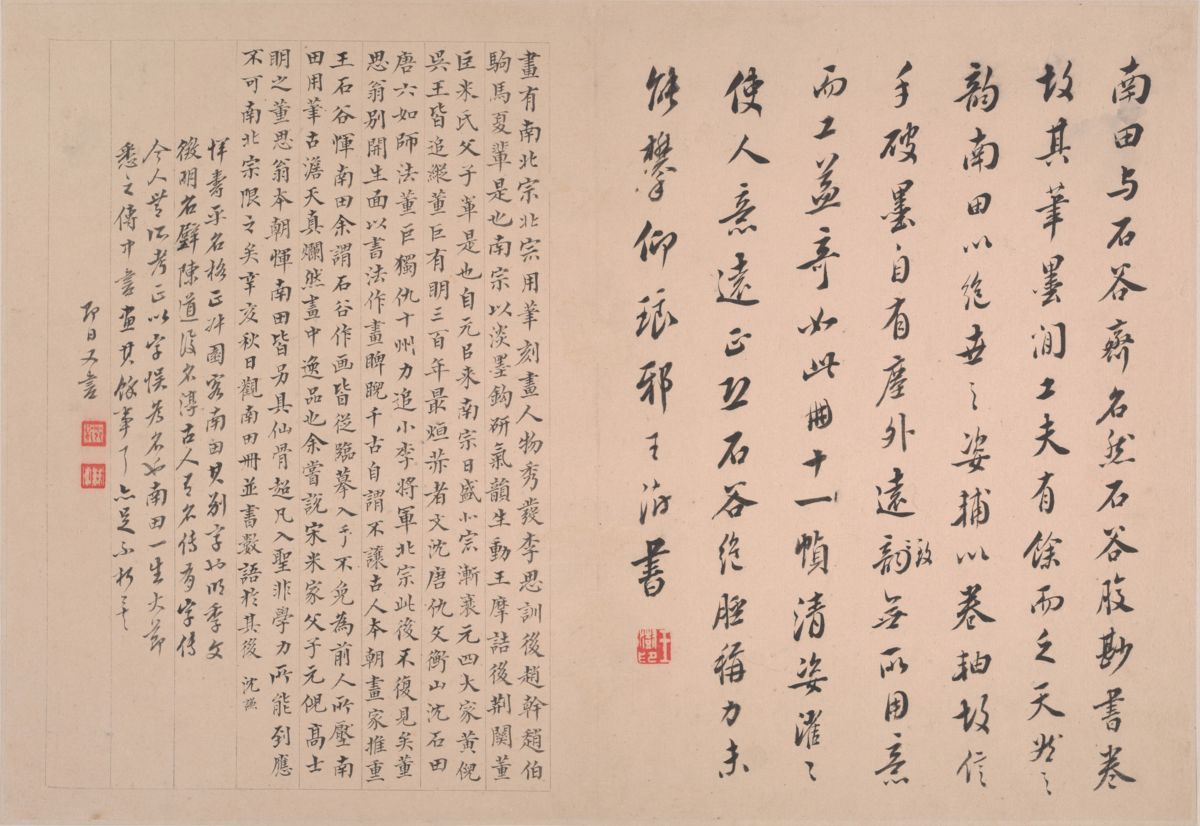 南田与石谷齊名然石谷腹尠書卷
故其筆墨間工夫有餘而乏天然之
韵南田以絕世之姿輔以卷軸故信
手破墨自有塵外遠韵致無所用意
而工益奇如此冊十一幀清姿濯濯
使人意遠正恐石谷絕脰稱力未
能攀仰琅邪王澍書
畫有南北宗北宗用筆刻畫人物秀發李思訓後趙幹趙伯
駒馬夏輩是也南宗以淡墨鈎研氣韻生動王摩詰後荆關董
巨米氏父子輩是也自元已來南宗日盛北宗漸衰元四大家黃倪
吳王皆追蹤董巨有明三百年最烜赫者文沈唐仇文衡山沈石田
唐六如師法董巨獨仇十州力追小李將軍北宗此後不復見矣董
思翁別開生面以書法作畫睥睨千古自謂不讓古人本朝畫家推重
王石谷惲南田余謂石谷作画皆從臨摹入手不免為前人所壓南
田用筆古澹天真爛然畫中逸品也余嘗說宋米家父子元倪高士
明之董思翁本朝惲南田皆另具仙骨超凡入聖非學力所能到應
不可南北宗限之矣辛亥秋日觀南田冊並書數語於其後 沈謙
惲壽平名格正叔園客南田其別字也明季文
徵明名璧陳道復名淳古人有名傳有字傳
今人背不考正以字悞為名也南田一生大節
悉之傳中書画其餘事了亦足不朽矣
即日又書
王澍印